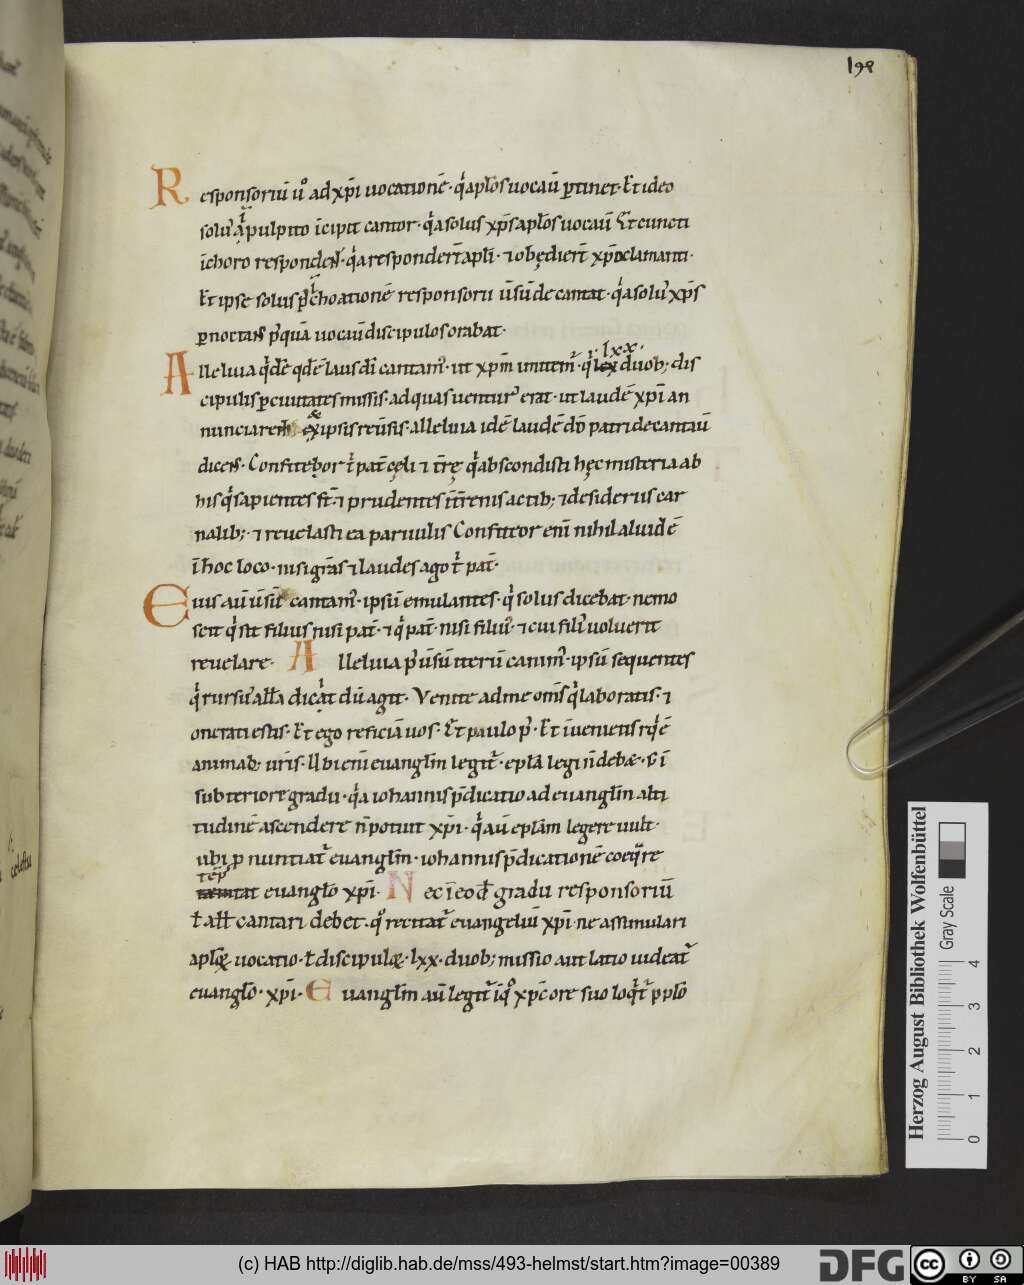 198
Responsoriū u° ad xp̄i uocationē· qͥ apl̄os uocauͥ ptinet· Et ideo
soluˀ a pulpito īcipit cantor· qͥa solus xp̄s apl̄os uocauͥ Et cuncti
īchoro respondēt· qͥa respondert̄ apl̄i· ⁊ obędiert̄ xp̄o clamanti·
Et ipse solus p̄ choationē responsorii ūsū decantat· qͥa soluˀ xp̄s
pnoctans pˀquā uocauͥ discipulos orabat·
Alleluia qͥdē qd̄ē laus dī cantamˀ· ut xp̄m imitemͬ· qͥ lxx· duob; dis
cipulis p ciuitates missis· ad quas uenturˀ erat· ut laudē xp̄i an
nunciarent ex ipsis reūsis· alleluia idē laudē dō patri decantauͥ
dicens· Confitebor t̄ pat̄ cęli ⁊ t̄rę qͥ abscondisti hęc misteria ab
his qͥ sapientes st̄· ⁊ prudentes ī t̄renis actib; ⁊ desideriis car
nalib;· ⁊ reuelasti ea paruulis Confiteor enī nihil aliud ē
ī hoc loco· nisi grās ⁊ laudes ago t̄ pat̄·
Euis aū ūsū cantamˀ· ipsū emulantes· qͥ solus dicebat· nemo
scit qͥ sit filius nisi pat̄· ⁊ qͥ pat̄· nisi filiuˀ· ⁊ cui filiˀ uoluerit
reuelare· Alleluia pˀ ūsū iterū canimˀ· ipsū sequentes
qͥ rursuˀ all̄a dicat dū agit· Venite ad me om̄s qͥ laboratis· ⁊
onerati estis· Et ego reficiā uos· Et paulo pˀ· Et īuenietis rqͥē
animab; ur̄is· Ubi enī euangl̄m legitͬ· epl̄a legi n̄ debæ· s; ī
subteriore gradu· qͥa iohannis p̄dicatio ad euangl̄m alti
tudinē ascendere n̄ potuit xp̄i· qͥ aū epl̄am legere uult·
ubi pnuntiatͬ euangl̄m· iohannis p̄dicationē coeqͣre
temptat euangl̄o xp̄i· Nec ī eod̄ gradu responsoriū
ł all̄ cantari debet· q° recitatͬ euangeliū xp̄i ne assimulari
apl̄oꝝ uocatio· ł discipuloꝝ· lxx· duob; missio aut latio uideatͬ
euangl̄o· xp̄i· Euangl̄m aū legitͬ ī q° xp̄c ore suo loqͥtͬ pplo
Herzog August Bibliothek Wolfenbüttel
Gray Scale
0 1 2 3 4
(c) HAB http://diglib.hab.de/mss/493-helmst/start.htm?image=00389
DFG
cc BY SA